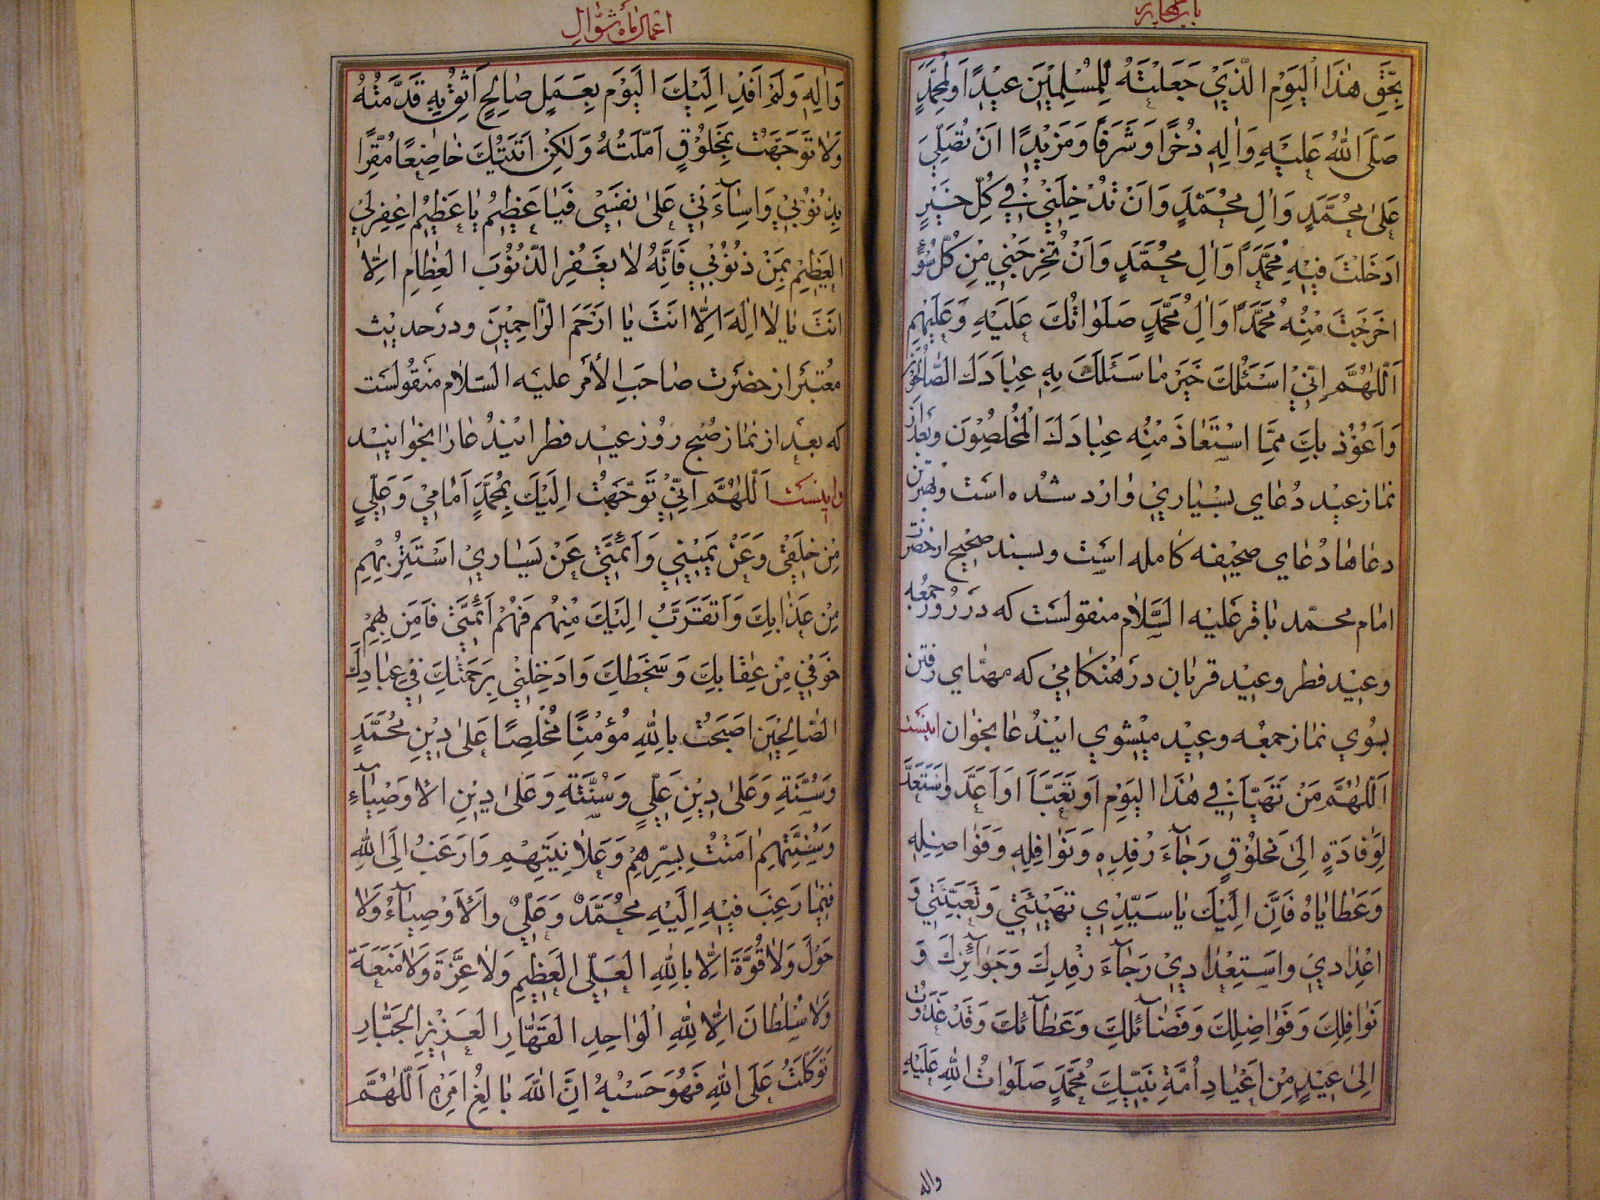 باب چهارم
بِحَقِّ هٰذَا الْيَوْمِ الَّذِي جَعَلْتَهُ لِلْمُسْلِمِيْنَ عِيْدًا وَلِمُحَمَّدٍ
صَلَّى اللّٰهُ عَلَيْهِ وَاٰلِهِ ذُخْرًا وَشَرَفًا وَمَزِيْدًا اَنْ تُصَلِّيَ
عَلٰى مُحَمَّدٍ وَاٰلِ مُحَمَّدٍ وَاَنْ تُدْخِلَنِيْ فِي كُلِّ خَيْرٍ
اَدْخَلْتَ فِيْهِ مُحَمَّدًا وَاٰلَ مُحَمَّدٍ وَاَنْ تُخْرِجَنِي مِنْ كُلِّ سُوْءٍ
اَخْرَجْتَ مِنْهُ مُحَمَّدًا وَاٰلَ مُحَمَّدٍ صَلَوَاتُكَ عَلَيْهِ وَعَلَيْهِمْ
اَللّٰهُمَّ اِنِّيْ اَسْئَلُكَ خَيْرَ مٰا سَئَلَكَ بِهِ عِبٰادُكَ الصّٰالِحُوْنَ
وَاَعُوْذُ بِكَ مِمَّا اسْتَعٰاذَ مِنْهُ عِبٰادُكَ الْمُخْلَصُوْنَ وبعد از
نماز عيد دعاى بسيارى وارد شده است وبهترين
دعاها دعاى صحيفه كامله است وبسند صحيح از حضرت
امام محمّد باقر عليه السّلام منقولست كه در روز جمعه
وعيد فطر وعيد قربان در هنكامى كه مهيّاى رفتن
بسوى نماز جمعه وعيد ميشوى ايندعا بخوان اينست
اَللّٰهُمَّ مَنْ تَهَيَّأَ فِي هٰذَا الْيَوْمِ اَوْ تَعَبَّأَ اَوْ اَعَدَّ وَاسْتَعَدَّ
لِوِفٰادَةٍ اِلٰى مَخْلُوْقٍ رَجٰاءَ رِفْدِهِ وَنَوٰافِلِهِ وَفَوٰاضِلِهِ
وَعَطٰايٰاهُ فَاِنَّ اِلَيْكَ يٰا سَيِّدِي تَهْيِئَتِي وَتَعْبِئَتِي وَ
اِعْدٰادِي وَاسْتِعْدٰادِي رَجٰاءَ رِفْدِكَ وَجَوٰائِزِكَ وَ
نَوٰافِلِكَ وَفَوٰاضِلِكَ وَفَضٰائِلِكَ وَعَطٰائِكَ وَقَدْ غَدَوْتُ
اِلٰى عِيْدٍ مِنْ اَعْيٰادِ اُمَّةِ نَبِيِّكَ مُحَمَّدٍ صَلَوٰاتُ اللّٰهِ عَلَيْهِ
واله
اعمال ماه شوّال
وَاٰلِهِ وَلَمْ اَفِدْ اِلَيْكَ الْيَوْمَ بِعَمَلٍ صٰالِحٍ اَثِقُ بِهِ قَدَّمْتُهُ
وَلٰا تَوَجَّهْتُ بِمَخْلُوْقٍ اَمَّلْتُهُ وَلٰكِنْ اَتَيْتُكَ خٰاضِعًا مُقِرًّا
بِذُنُوْبِيْ وَاِسٰاءَتِيْ عَلٰى نَفْسِيْ فَيٰا عَظِيْمُ يٰا عَظِيْمُ اِغْفِرْ لِيَ
الْعَظِيْمَ مِنْ ذُنُوْبِيْ فَاِنَّهُ لٰا يَغْفِرُ الذُّنُوْبَ الْعِظٰامَ اِلّٰا
اَنْتَ يٰا لٰا اِلٰهَ اِلّٰا اَنْتَ يٰا اَرْحَمَ الرّٰاحِمِيْنَ ودر حديث
معتبر از حضرت صاحب الأمر عليه السّلام منقولست
كه بعد از نماز صبح روز عيد فطر ايندعا را بخوانيد
واينست اَللّٰهُمَّ اِنِّيْ تَوَجَّهْتُ اِلَيْكَ بِمُحَمَّدٍ اَمٰامِيْ وَعَلِيٍّ
مِنْ خَلْفِيْ وَعَنْ يَمِيْنِي وَاَئِمَّتِيْ عَنْ يَسٰارِيْ اَسْتَتِرُ بِهِمْ
مِنْ عَذٰابِكَ وَاَتَقَرَّبُ اِلَيْكَ مِنْهُمْ فَهُمْ اَئِمَّتِيْ فَاٰمِنْ بِهِمْ
خَوْفِيْ مِنْ عِقٰابِكَ وَسَخَطِكَ وَاَدْخِلْنِيْ بِرَحْمَتِكَ فِيْ عِبٰادِكَ
الصّٰالِحِيْنَ اَصْبَحْتُ بِاللّٰهِ مُؤْمِنًا مُخْلِصًا عَلٰى دِيْنِ مُحَمَّدٍ
وَسُنَّتِهِ وَعَلٰى دِيْنِ عَلِيٍّ وَسُنَّتِهِ وَعَلٰى دِيْنِ الْاَوْصِيٰاءِ
وَسُنَّتِهِمْ اٰمَنْتُ بِسِرِّهِمْ وَعَلٰانِيَتِهِمْ وَاَرْغَبُ اِلَى اللّٰهِ
فِيْمٰا رَغِبَ فِيْهِ اِلَيْهِ مُحَمَّدٌ وَعَلِيٌّ وَالْاَوْصِيٰاءُ وَلٰا
حَوْلَ وَلٰا قُوَّةَ اِلّٰا بِاللّٰهِ الْعَلِيِّ الْعَظِيْمِ وَلٰا عِزَّةَ وَلٰا مَنَعَةَ
وَلٰا سُلْطٰانَ اِلّٰا لِلّٰهِ الْوٰاحِدِ الْقَهّٰارِ الْعَزِيْزِ الْجَبّٰارِ
تَوَكَّلْتُ عَلَى اللّٰهِ فَهُوَ حَسْبُهُ اِنَّ اللّٰهَ بٰالِغُ اَمْرِهِ اَللّٰهُمَّ